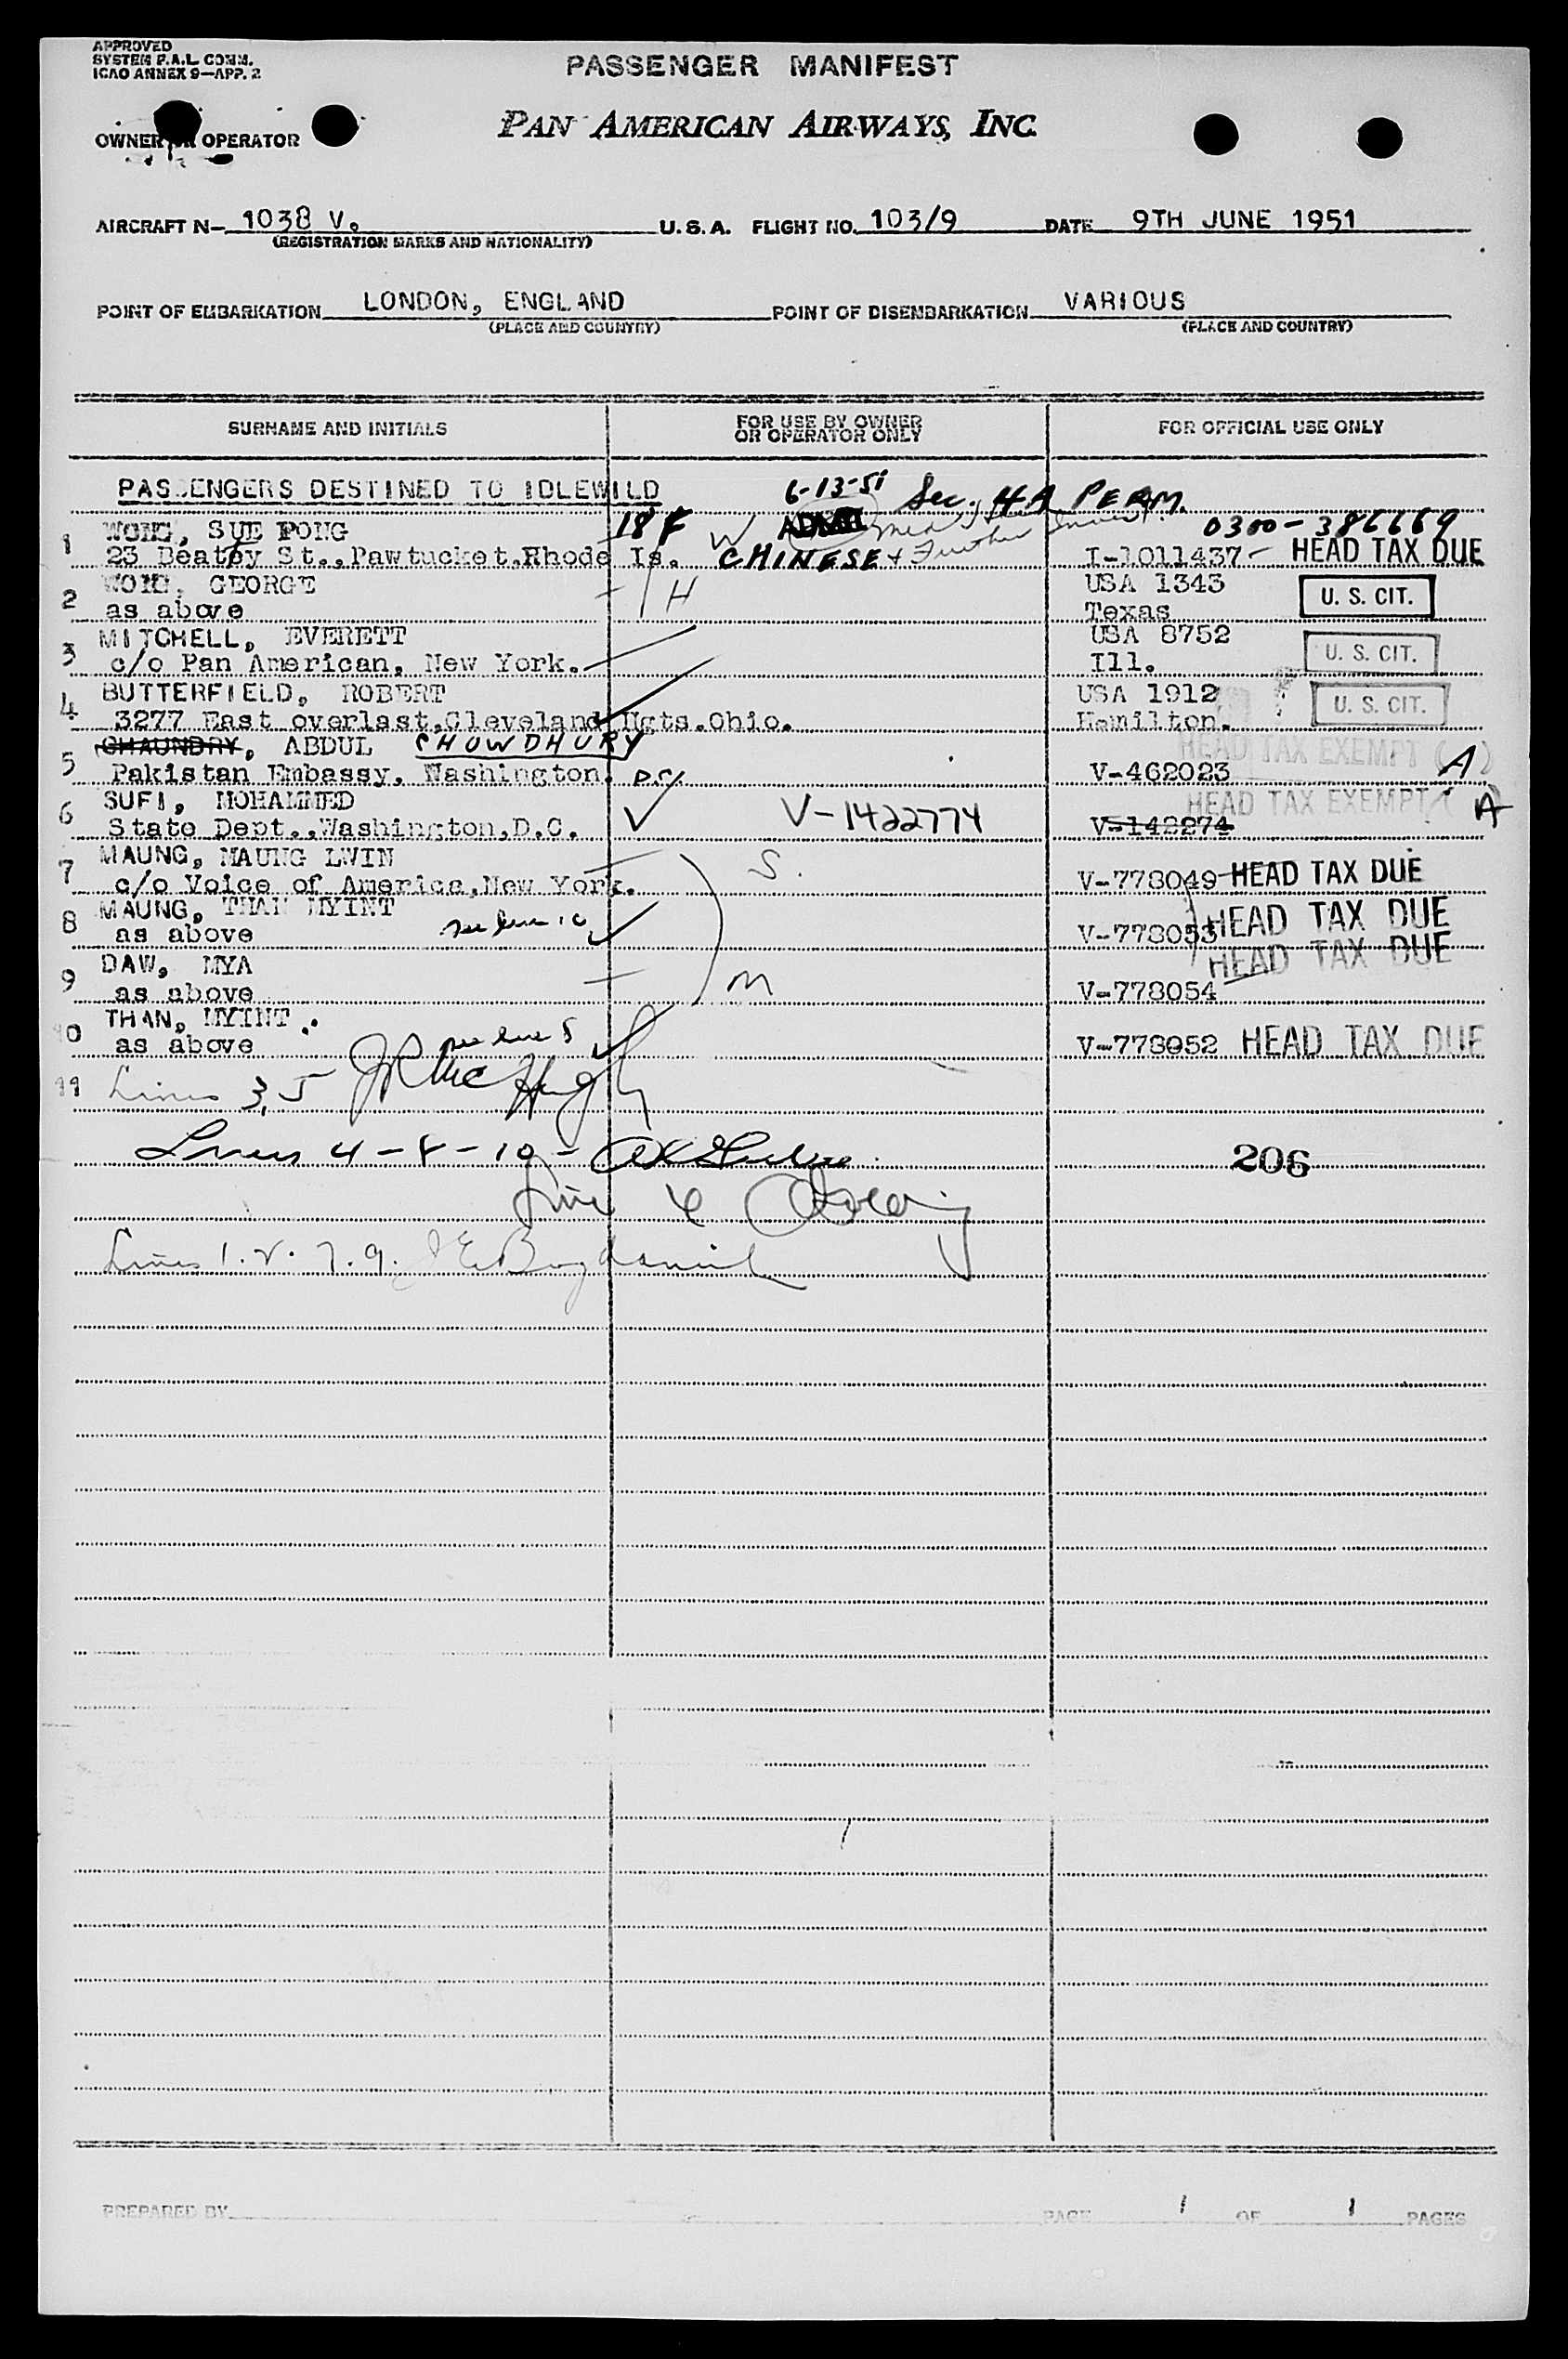 APPROVED
SYSTEM P.A.L. COMM.
ICAO ANNEX 9—APP. 2
PASSENGER MANIFEST
OWNER OR OPERATOR
PAN AMERICAN AIRWAYS, INC.
AIRCRAFT N- 1038 V. U.S.A. FLIGHT NO. 103/9 DATE 9TH JUNE 1951
(REGISTRATION MARKS AND NATIONALITY)
POINT OF EMBARKATION LONDON, ENGLAND POINT OF DISEMBARKATION VARIOUS
(PLACE AND COUNTRY) (PLACE AND COUNTRY)
SURNAME AND INITIALS FOR USE BY OWNER OR OPERATOR ONLY FOR OFFICIAL USE ONLY
PASSENGERS DESTINED TO IDLEWILD 6-13-51 Sec. 4A PERM.
1 WONG, SUE PONG 18 F W 0300-386669
23 Beatty St., Pawtucket, Rhode Is. CHINESE + Further I-1011437- HEAD TAX DUE
2 WONG, GEORGE H USA 1343 U. S. CIT.
as above Texas
3 MITCHELL, EVERETT USA 8752 U. S. CIT.
c/o Pan American, New York. Ill.
4 BUTTERFIELD, ROBERT USA 1912 U. S. CIT.
3277 East overlast, Cleveland Hgts. Ohio. Hamilton.
5 CHAUNDRY, ABDUL CHOWDHURY HEAD TAX EXEMPT ( A )
Pakistan Embassy, Washington. D.C. V-462023
6 SUFI, MOHAMMED V-1422774 HEAD TAX EXEMPT ( A
State Dept., Washington, D.C. V-142274
7 MAUNG, MAUNG LWIN S.
c/o Voice of America, New York. V-778049 HEAD TAX DUE
8 MAUNG, THAN MYINT see line 10 HEAD TAX DUE
as above V-778053
9 DAW, MYA HEAD TAX DUE
as above M V-778054
10 THAN, MYINT. see line 8
as above V-778052 HEAD TAX DUE
11 Lines 3, 5 JR McHugh
Lines 4-8-10- 206
Line 6
Lines 1. 2. 7. 9.
PREPARED BY PAGE 1 OF 1 PAGES